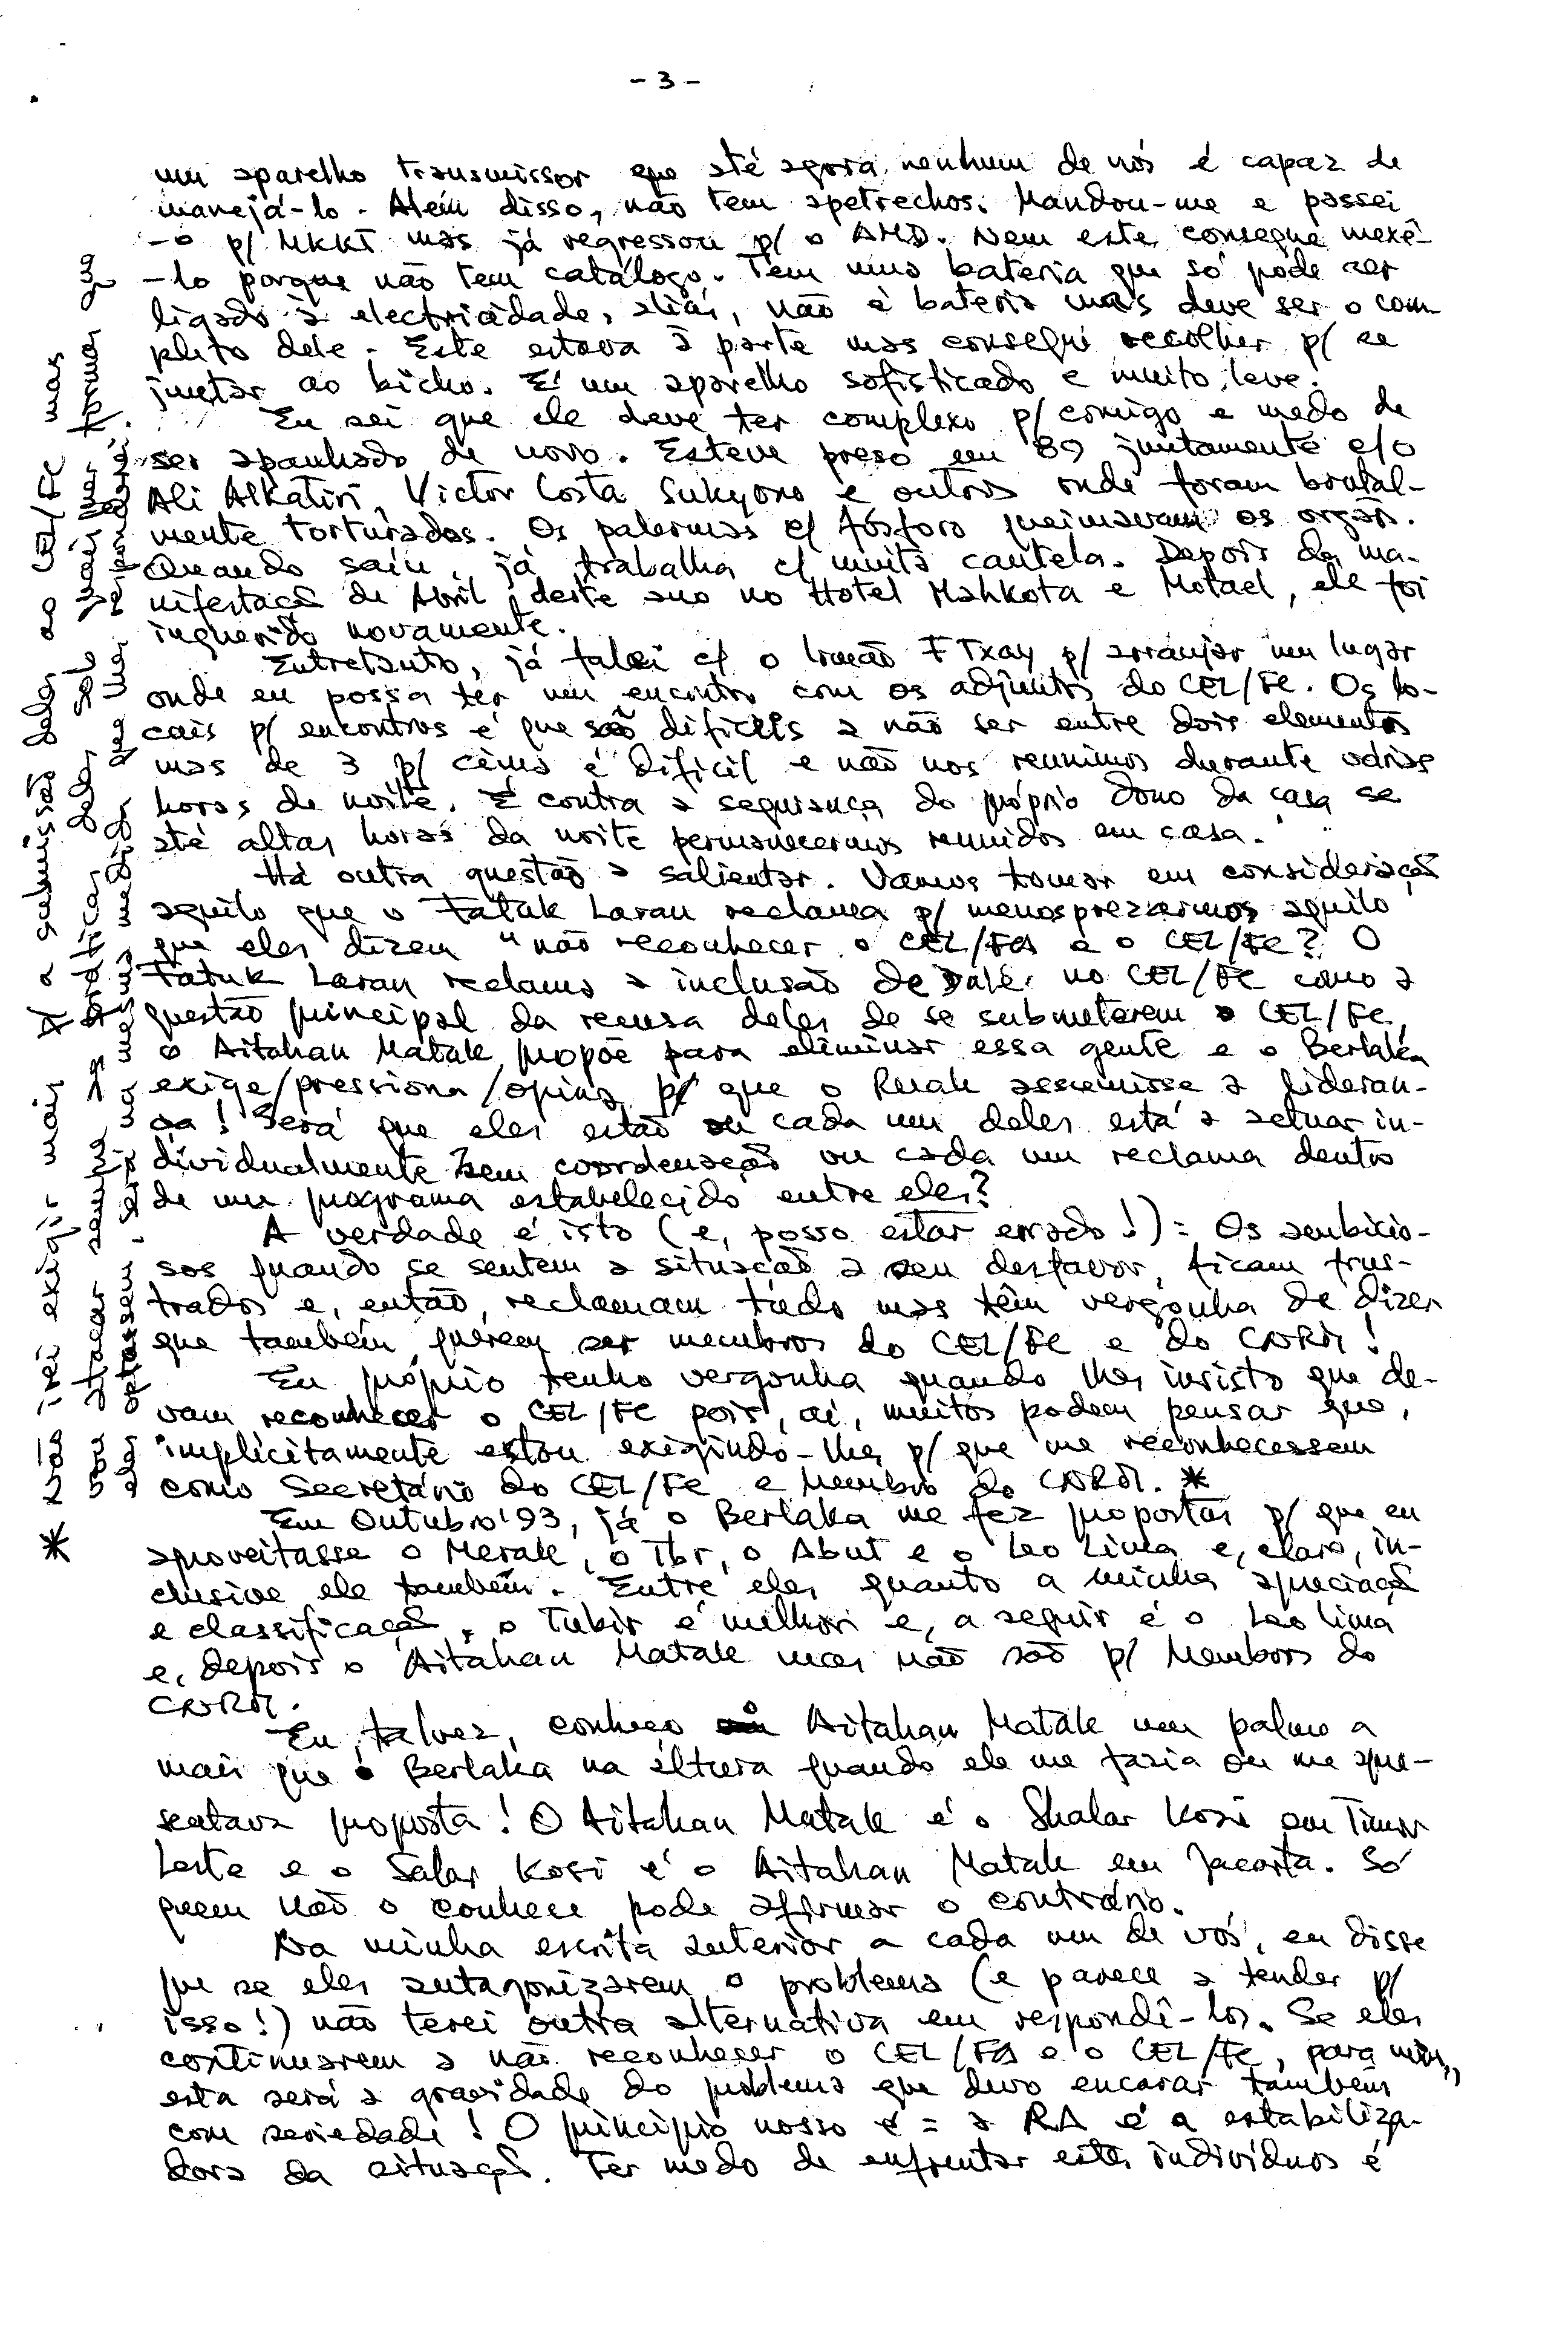 - 3 -
um aparelho transmissor que até agora nenhum de nós é capaz de
manejá-lo. Além disso, não tem apetrechos. Mandou-me e passei
-o p/ MKKI mas já regressou p/ o AMD. Nem este consegue mexê-
-lo porque não tem catálogo. Tem uma bateria que só pode ser
ligado à electricidade, aliás, não é bateria mas deve ser o com-
pleto dele. Este estava à parte mas consegui recolher p/ se
juntar ao bicho. É um aparelho sofisticado e muito leve.
Eu sei que ele deve ter complexo p/ comigo e medo de
ser apanhado de novo. Esteve preso em 89 juntamente c/o
Ali Alkatiri, Victor Costa Sukyono e outros onde foram brutal-
mente torturados. Os palermas c/ fósforo queimavam os orgãos.
Quando saiu, já trabalha c/ muita cautela. Depois da ma-
nifestação de Abril deste ano no Hotel Mahkota e Motael, ele foi
inquerido novamente.
Entretanto, já falei c/ o Irmão F Txay p/ arranjar um lugar
onde eu possa ter um encontro com os adjuntos do CEL/Fe. Os lo-
cais p/ encontros é que são difíceis a não ser entre dois elementos
mas de 3 p/ cima é difícil e não nos reunimos durante várias
horas de noite. É contra a segurança do próprio dono da casa se
até altas horas da noite permanecermos reunidos em casa.
Há outra questão a salientar. Vamos tomar em consideração
aquilo que o Fatuk Laran reclama p/ menosprezarmos aquilo
que eles dizem "não reconhecer o CEL/FA e o CEL/Fe? O
Fatuk Laran reclama a inclusão de Dulé no CEL/Fe como a
questão principal da recusa deles de se submeterem o CEL/Fe,
o Aitahan Matak propõe para eliminar essa gente e o Berlaka
exige/pressiona/opina p/ que o Ruak assumisse a lideran-
ça! Será que eles estão ou cada um deles está a actuar in-
dividualmente sem coordenação ou cada um reclama dentro
de um programa estabelecido entre eles?
A verdade é isto (e, posso estar errado!) = Os ambicio-
sos quando se sentem a situação a seu desfavor, ficam frus-
trados e, então, reclamam tudo mas têm vergonha de dizer
que também querem ser membros do CEL/Fe e do CNRM!
Eu próprio tenho vergonha quando lhes insisto que de-
vam reconhecer o CEL/Fe pois, aí, muitos podem pensar que,
implicitamente estou exigindo-lhes p/ que me reconhecessem
como Secretário do CEL/Fe e Membro do CNRM. *
Em Outubro '93, já o Berlaka me fez propostas p/ que eu
aproveitasse o Merak, o Tbr, o Abut e o Leo Lima e, claro, in-
clusive ele também. Entre eles quanto a minha apreciação
e classificação, o Tubir é melhor e, a seguir é o Leo Lima
e, depois o Aitahan Matak mas não são p/ Membors do
CNRM.
Eu, talvez, conheço o Aitahan Matak um palmo a
mais que o Berlaka na altura quando ele me fazia ou me apre-
sentava proposta! O Aitahan Matak é o Shalar Kosi em Timor
Leste e o Salar Kosi é o Aitahan Matak em Jacarta. Só
quem não o conhece pode afirmar o contrário.
Na minha escrita anterior a cada um de vós, eu disse
que se eles antagonizarem o problema (e parece a tender p/
isso!) não terei outra alternativa em respondê-los. Se eles
continuarem a não reconhecer o CEL/FA e o CEL/Fe, para mim,
esta será a gravidade do problema que devo encarar também
com seriedade! O princípio nosso é = a RA é a estabiliza-
dora da situação. Ter medo de enfrentar estes indivíduos é
* Não irei exigir mais p/ a submissão deles ao CEL/Fe mas
sou atacar sempre as práticas deles sob quaisquer forma que
eles optassem, será na mesma medida que lhes responderei.